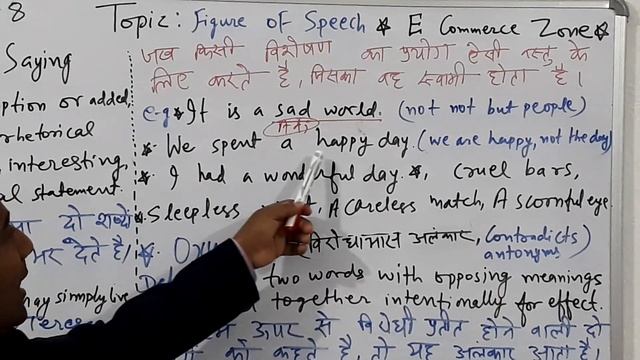 8
Topic: Figure of Speech ★ E Commerce Zone ★
Saying
ption or added,
rhetorical
interesting,
al statement.
दो शब्दो
देते है।
may simply live
जब किसी विशेषण का प्रयोग ऐसी वस्तु के
लिए करते है, जिसका वह स्वामी होता है।
e.g ★ It is a sad world. (not not but people)
★ We spent a happy day. (we are happy, not the day)
★ I had a wonderful day. ★, cruel bars,
★ Sleepless A careless match, A scornful eye.
विरोधाभास अलंकार, (Contradicts antonyms)
two words with opposing meanings
together intentionally for effect.
ऊपर से विरोधी प्रतीत होने वाली दो
को कहते है, तो यह अलंकार आता है।